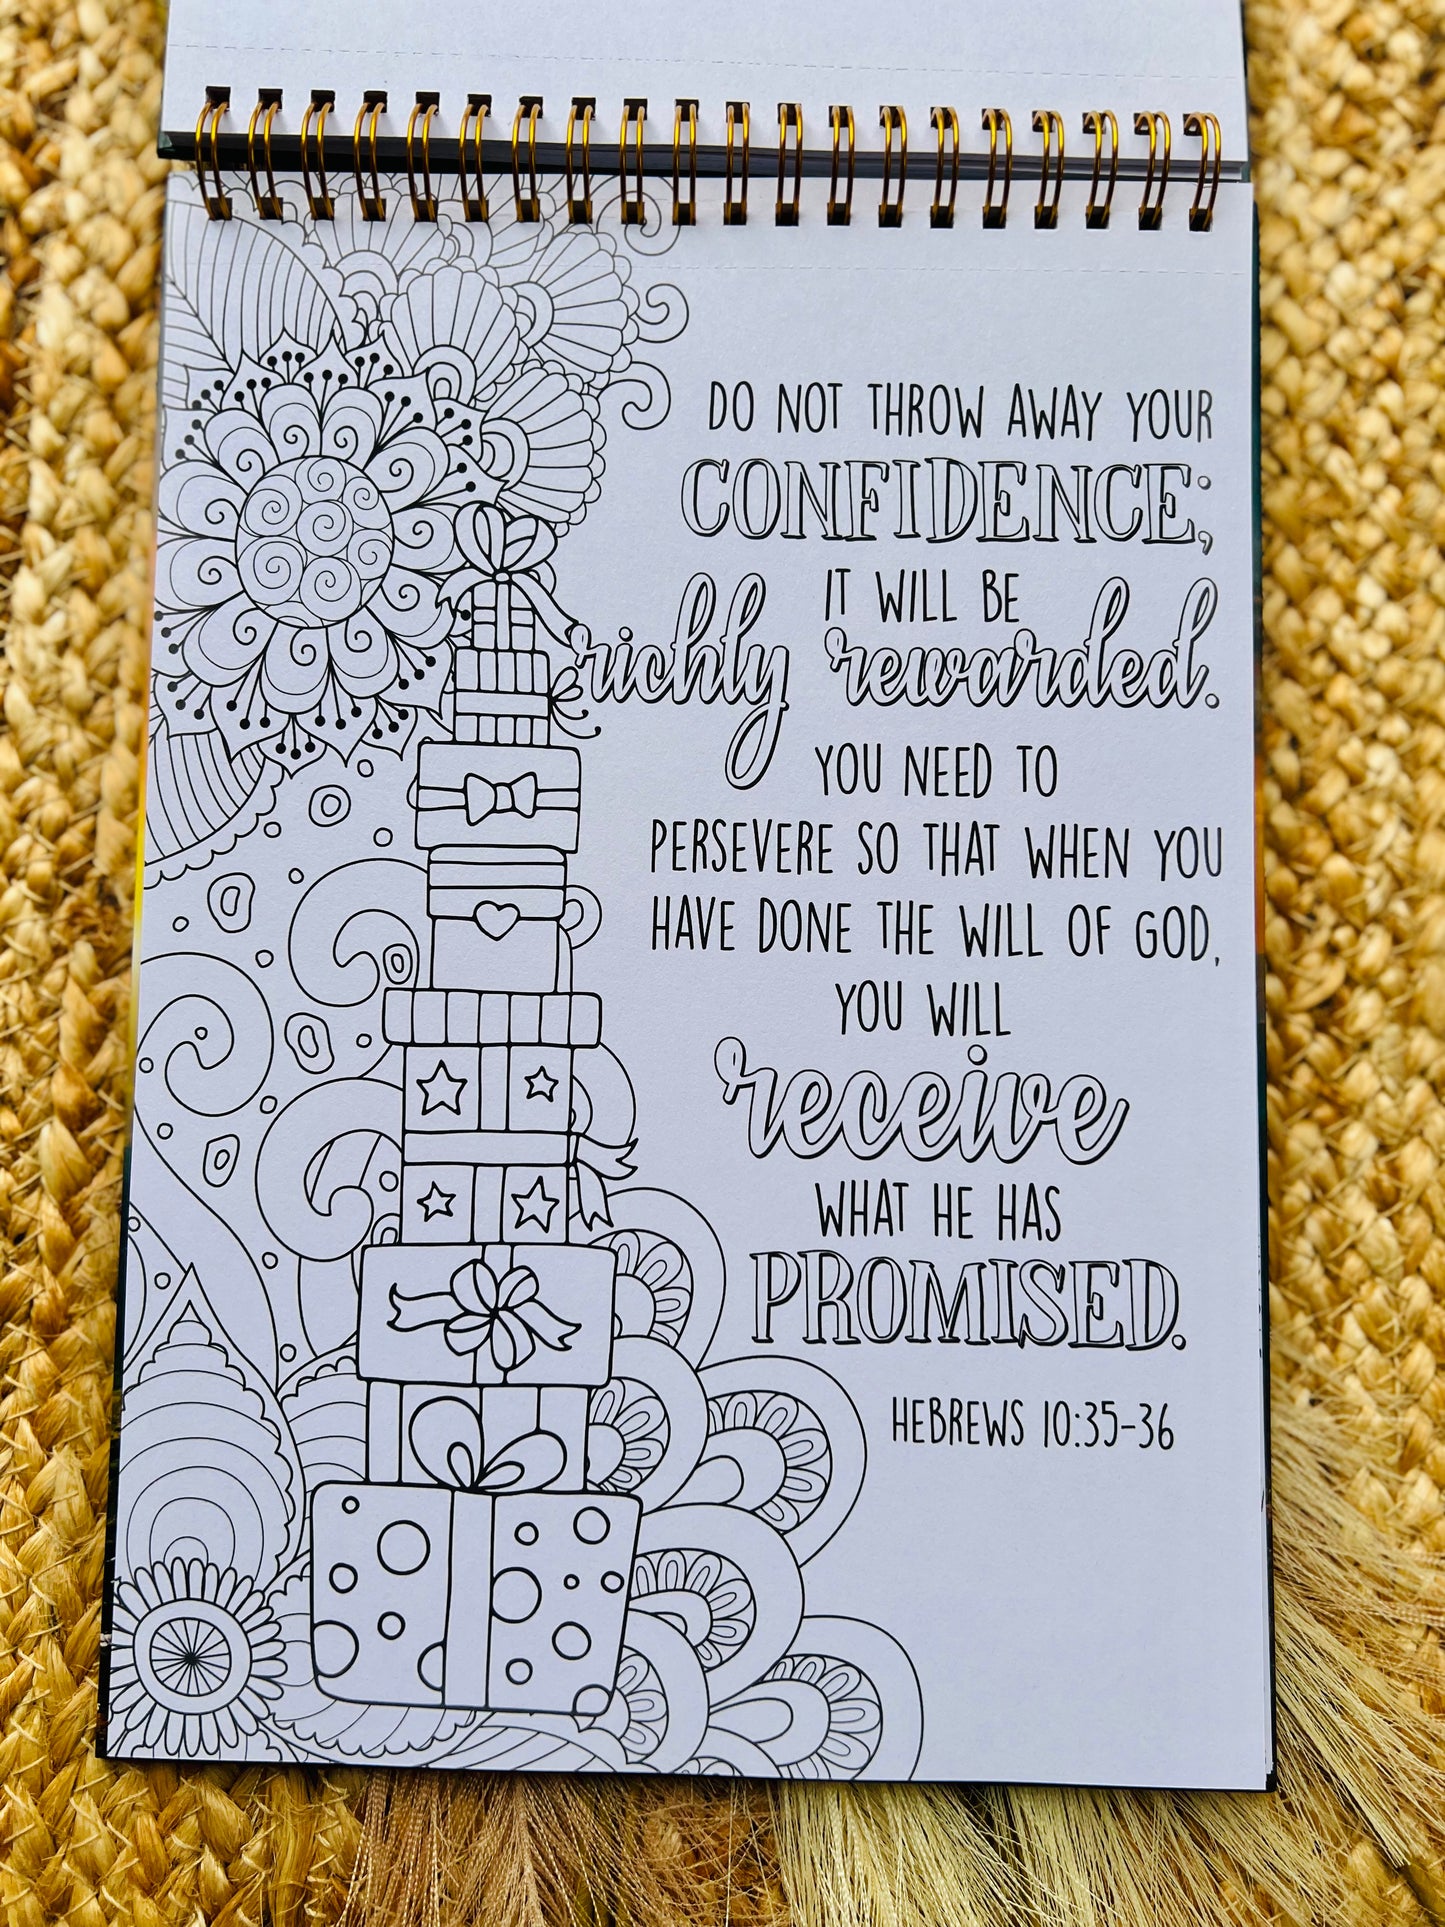 DO NOT THROW AWAY YOUR
CONFIDENCE;
IT WILL BE
richly rewarded.
YOU NEED TO
PERSEVERE SO THAT WHEN YOU
HAVE DONE THE WILL OF GOD,
YOU WILL
receive
WHAT HE HAS
PROMISED.
HEBREWS 10:35-36